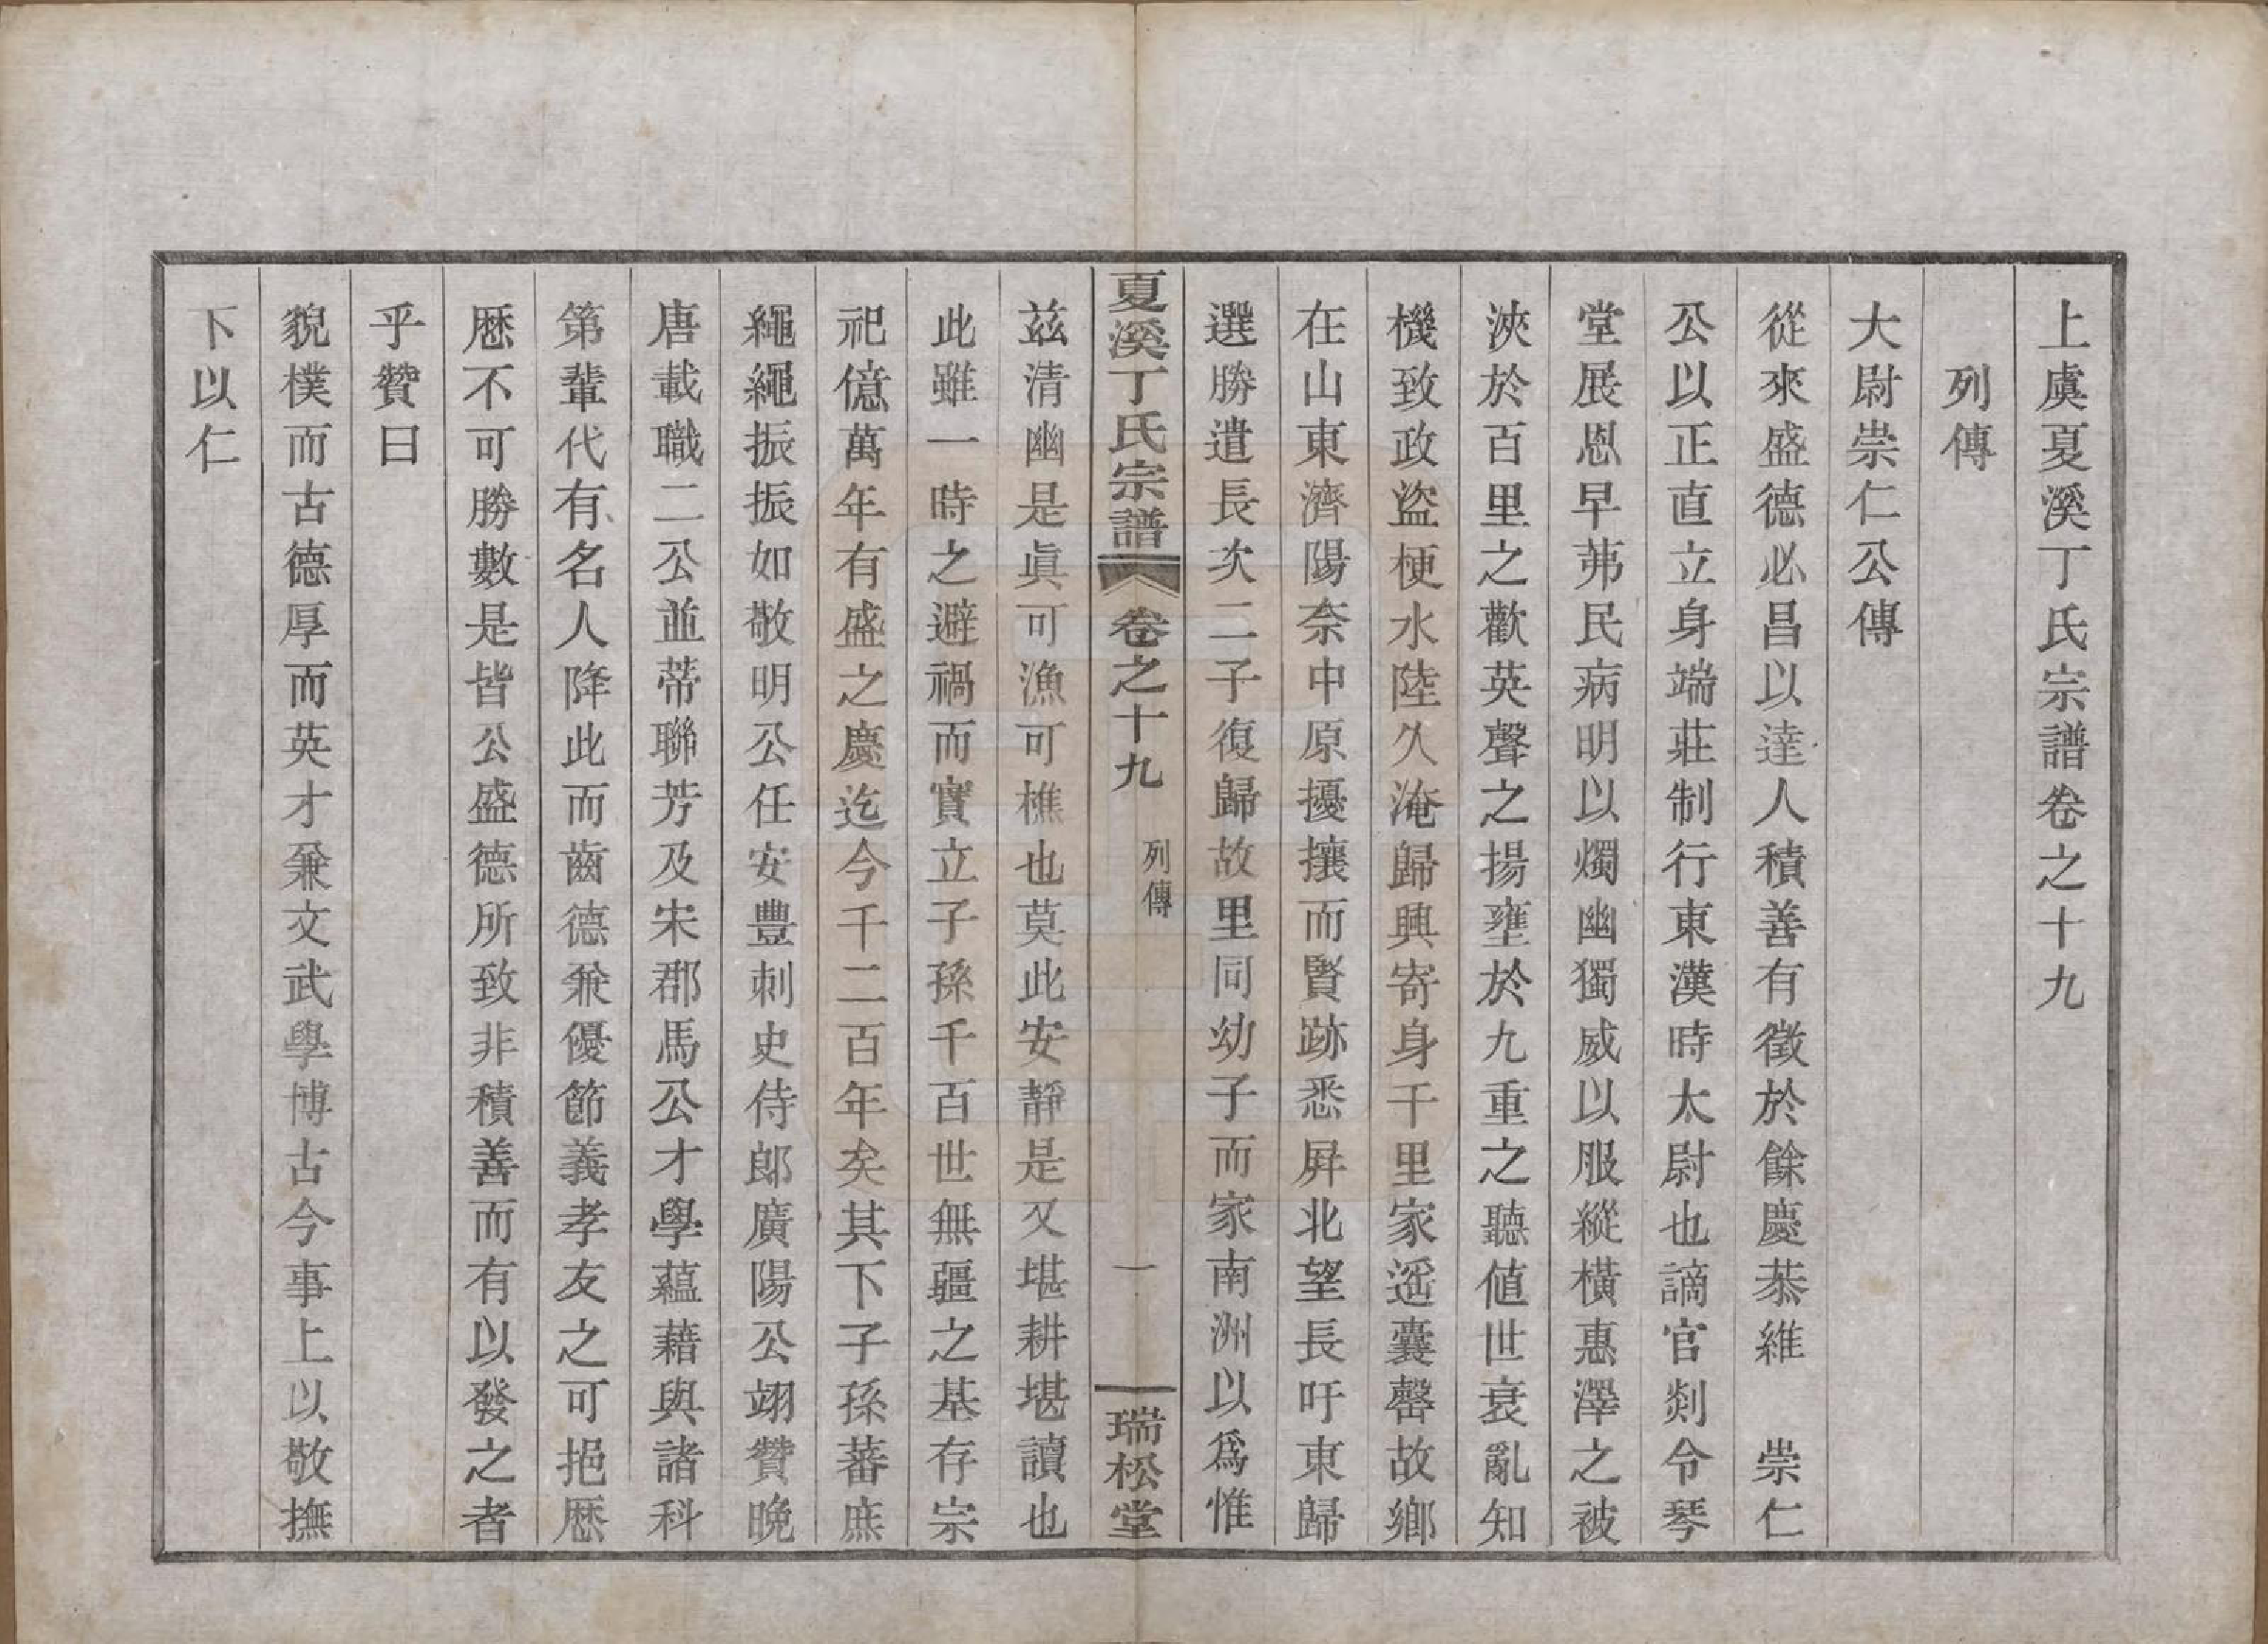 上虞夏溪丁氏宗譜卷之十九
列傳
大尉崇仁公傳
從來盛德必昌以達人積善有徵於餘慶恭維　崇仁
公以正直立身端莊制行東漢時太尉也謫官剡令琴
堂展恩早茀民病明以燭幽獨威以服縱橫惠澤之被
浹於百里之歡英聲之揚壅於九重之聽値世衰亂知
機致政盜梗水陸久淹歸興寄身千里家遥囊罄故鄉
在山東濟陽奈中原擾攘而賢跡悉屛北望長吁東歸
選勝遣長次二子復歸故里同幼子而家南洲以爲惟
夏溪丁氏宗譜　卷之十九　列傳　一　瑞松堂
茲清幽是眞可漁可樵也莫此安靜是又堪耕堪讀也
此雖一時之避禍而實立子孫千百世無疆之基存宗
祀億萬年有盛之慶迄今千二百年矣其下子孫蕃庶
繩繩振振如敬明公任安豐刺史侍郎廣陽公翊贊晚
唐載職二公並蒂聯芳及宋郡馬公才學蘊藉與諸科
第輩代有名人降此而齒德兼優節義孝友之可挹歷
歷不可勝數是皆公盛德所致非積善而有以發之者
乎贊曰
貌樸而古德厚而英才兼文武學博古今事上以敬撫
下以仁